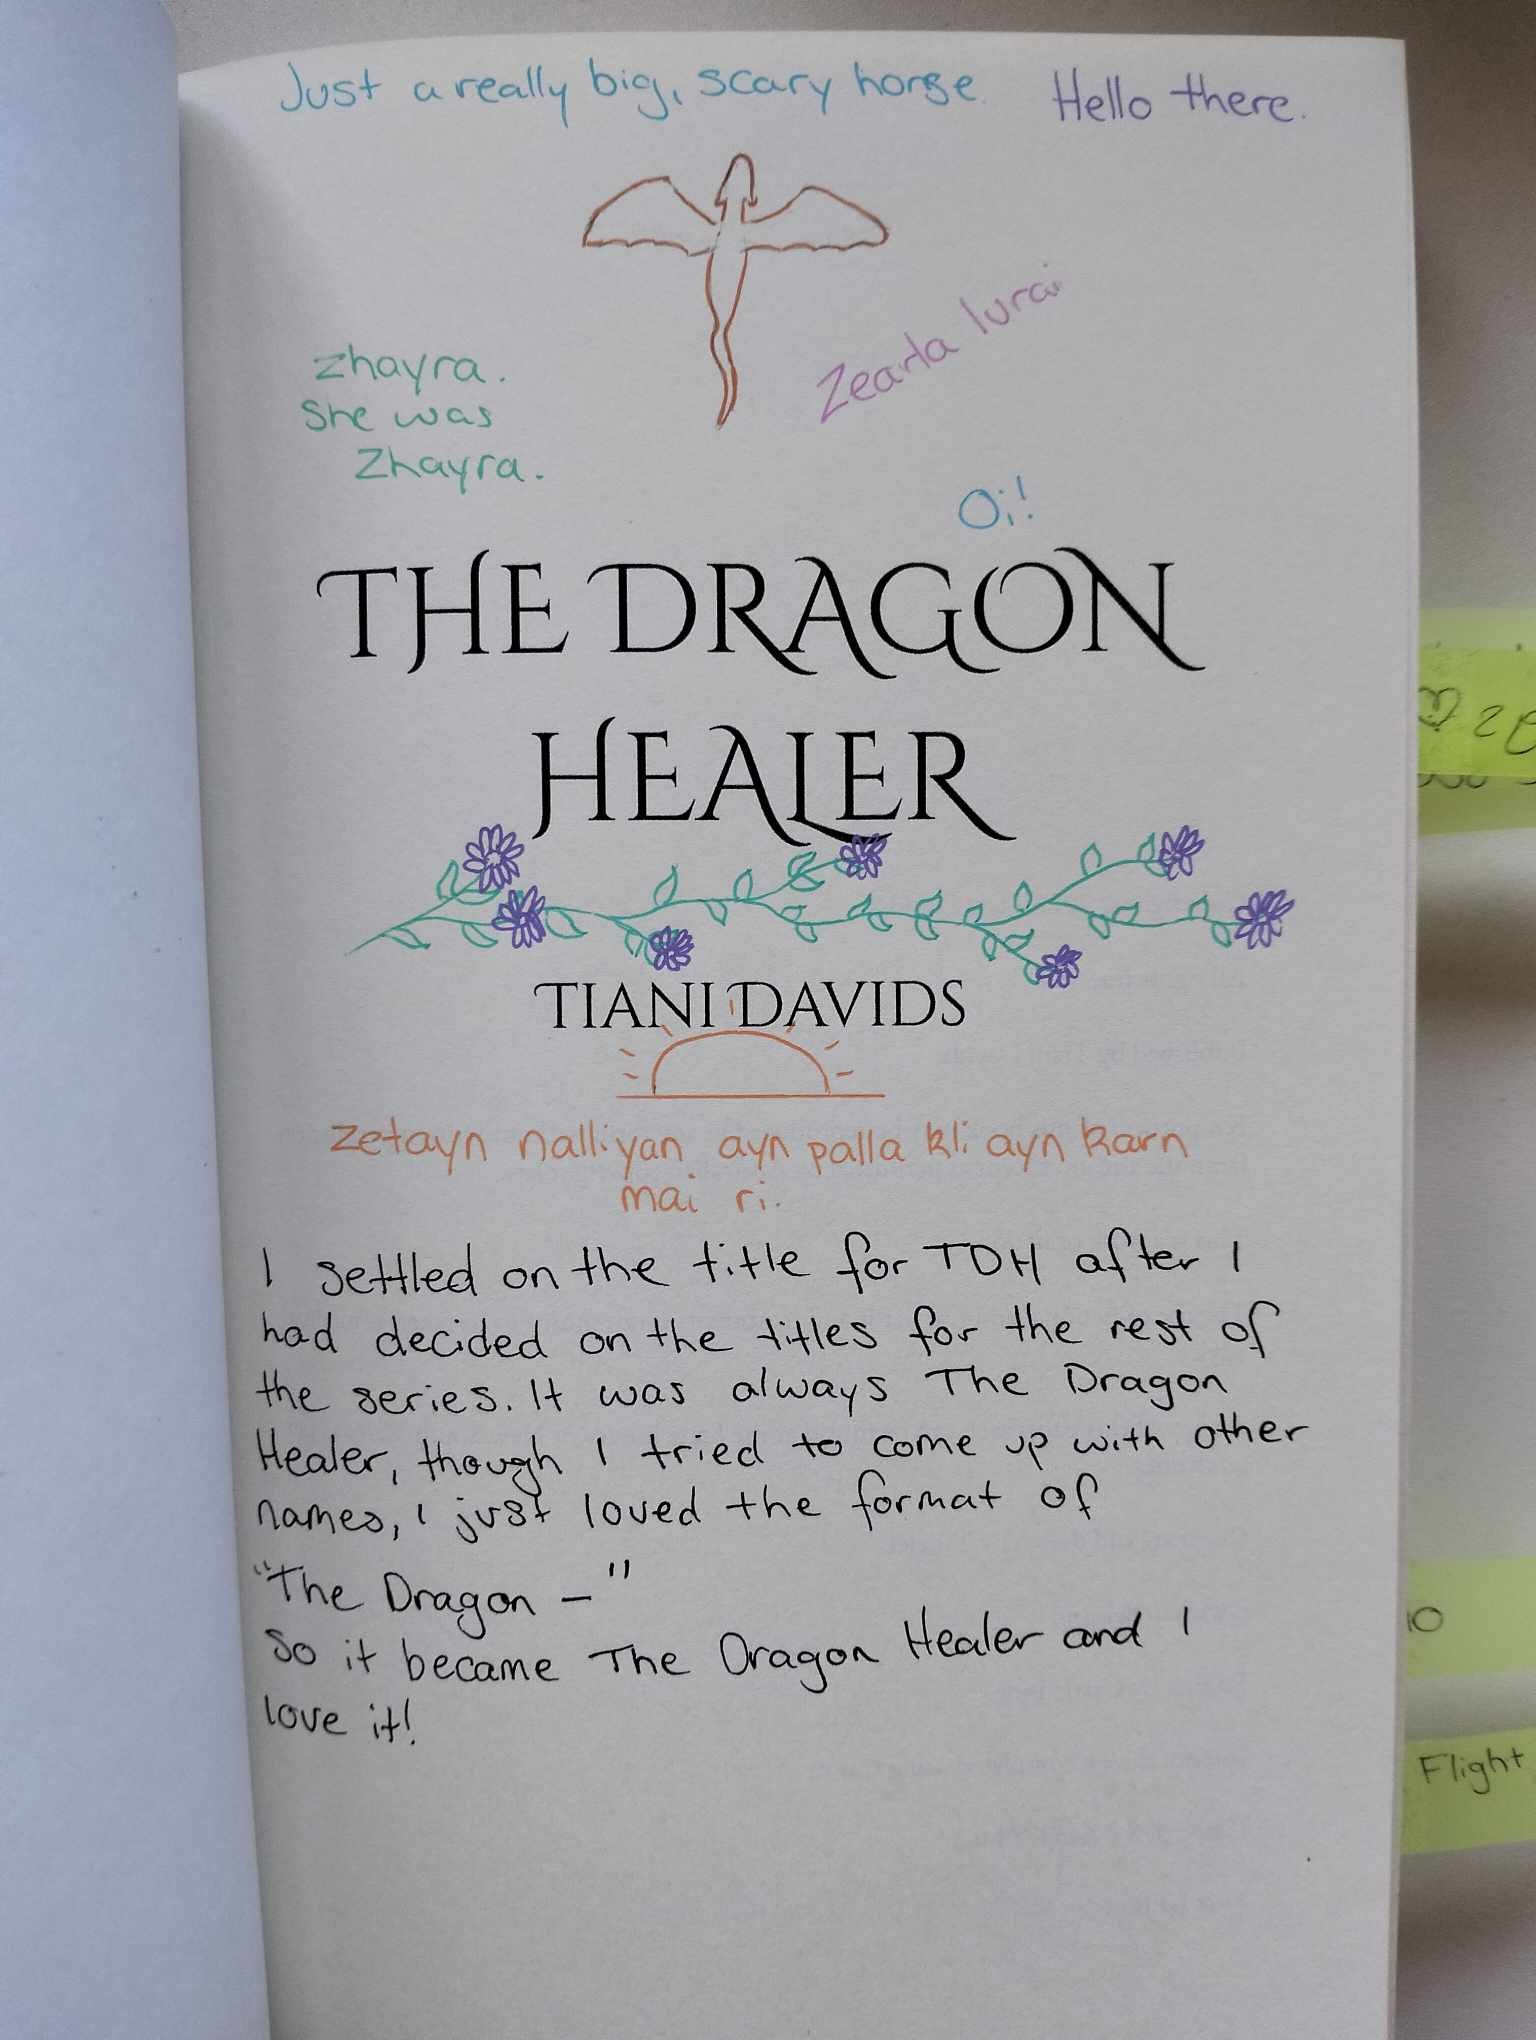 Just a really big, scary horse. Hello there.
Zearta lurai
zhayra.
She was
Zhayra.
Oi!
THE DRAGON
HEALER
TIANI DAVIDS
zetayn nalliyan ayn palla kli ayn karn
mai ri.
I settled on the title for TDH after I
had decided on the titles for the rest of
the series. It was always The Dragon
Healer, though I tried to come up with other
names, I just loved the format of
"The Dragon — "
So it became The Dragon Healer and I
love it!
Flight